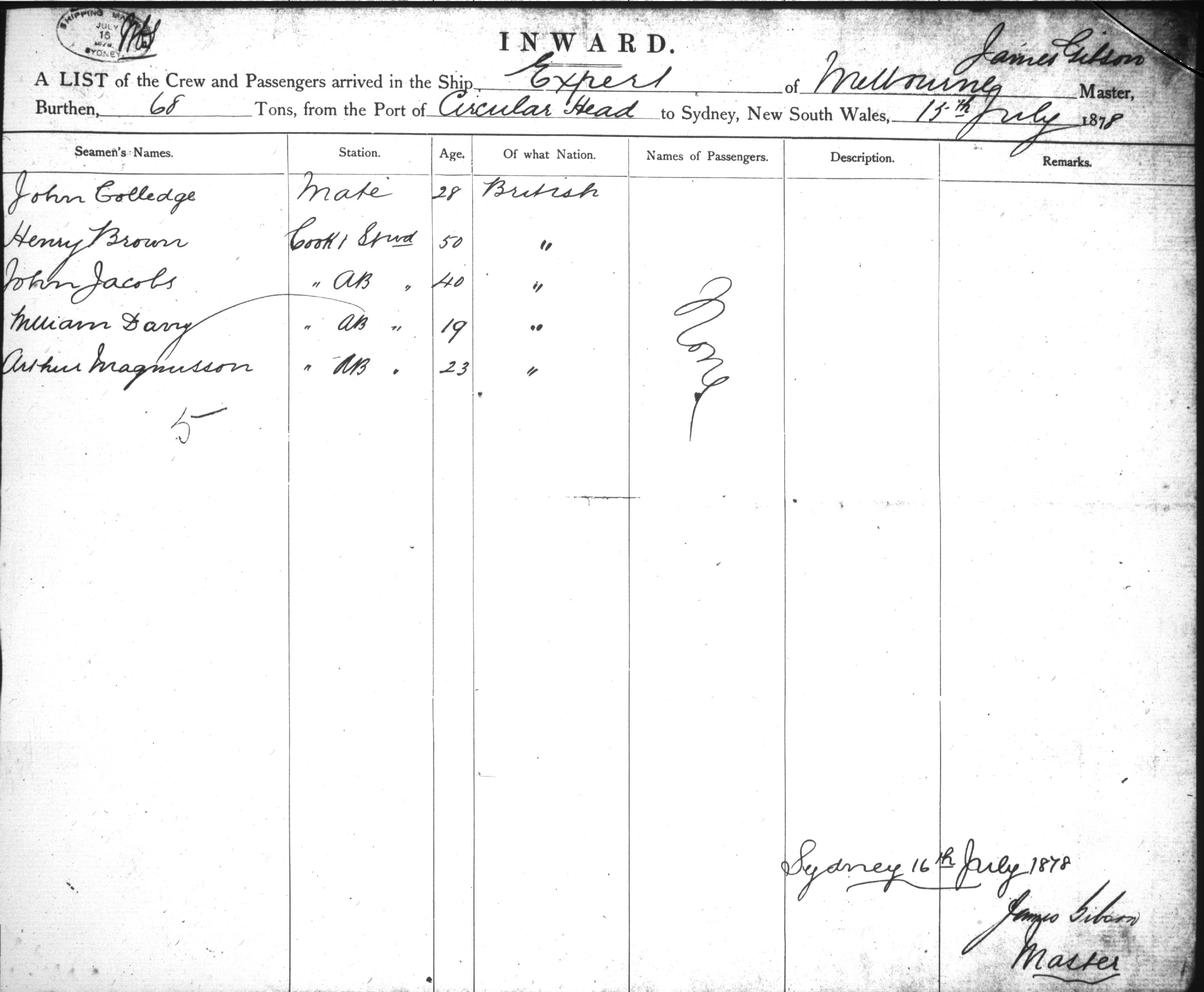 SHIPPING MA
JULY
16
SYDNEY
INWARD.
James Gibson
A LIST of the Crew and Passengers arrived in the Ship Expert of Melbourne Master,
Burthen, 68 Tons, from the Port of Circular Head to Sydney, New South Wales, 15th July 1878
Seamen's Names. Station. Age. Of what Nation. Names of Passengers. Description. Remarks.
John Colledge Mate 28 British
Henry Brown Cook & Stwd 50 "
John Jacobs " AB " 40 "
William Darry " AB " 19 "
Arthur Magnusson " AB " 23 "
None
5
Sydney 16th July 1878
James Gibson
Master